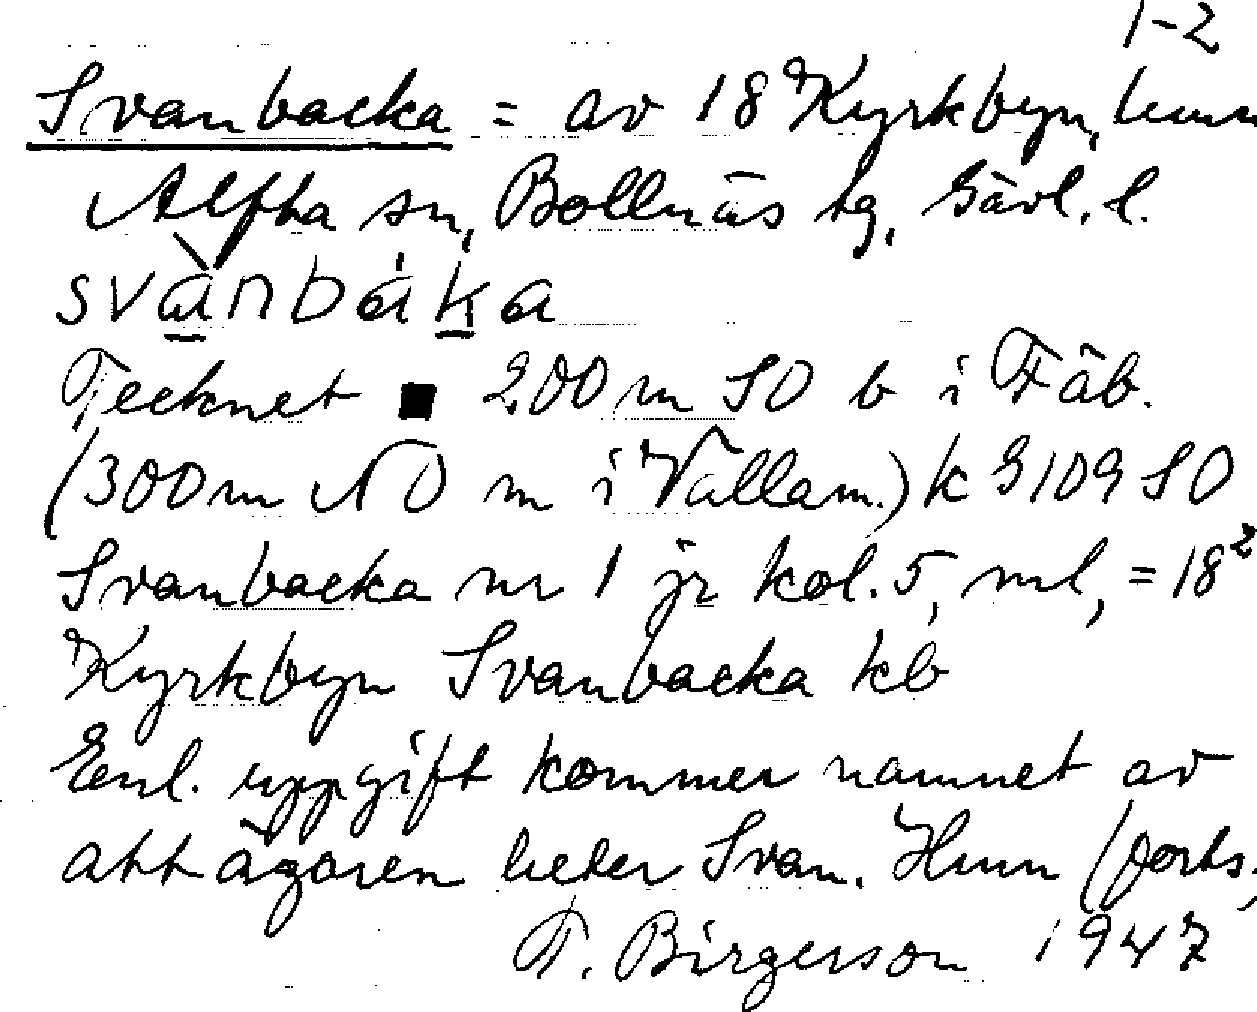 1-2
Svanbacka = av 18 Kyrkbyn, hmn
Alfta sn, Bollnäs tg, Gävl. l.
svànbáka
Tecknet ■ 200 m SO b i Fäb.
(300 m NO m i Vallam.) k 9109 SO
Svanbacka nr 1 jr kol. 5, ml, = 18²
Kyrkbyn Svanbacka kb
Enl. uppgift kommer namnet av
att ägaren heter Svan. Hmn (forts.
T. Birgerson 1947